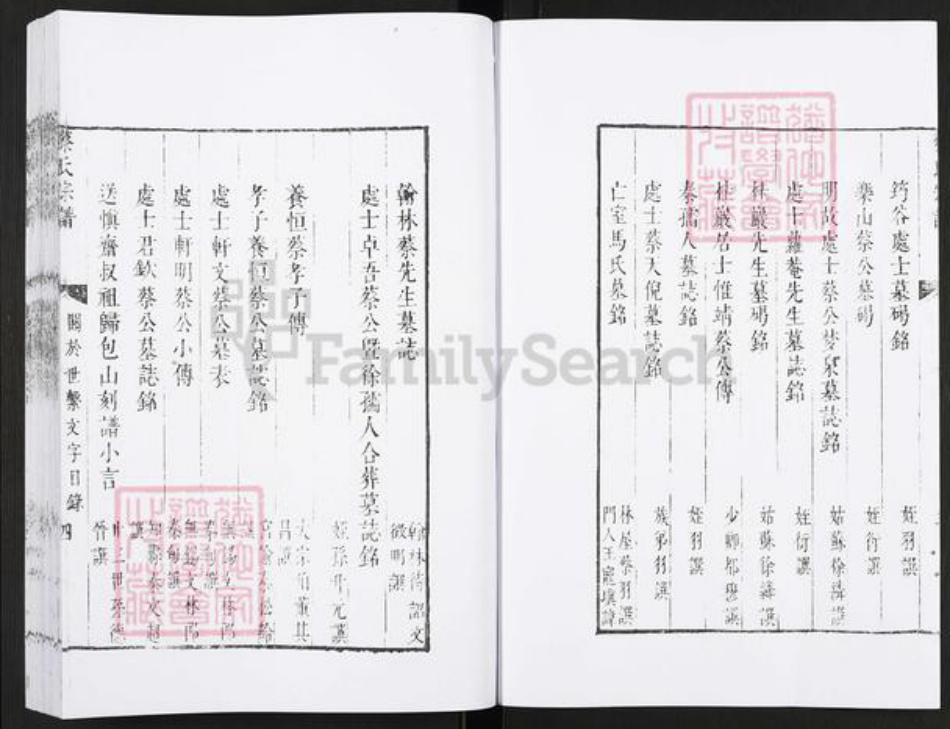 筠谷處士墓碣銘 姪羽譔
樂山蔡公墓碣 姪衍譔
明故處士蔡公夢泉墓誌銘 姑蘇徐濤譔
處士蘿菴先生墓誌銘 姪衍譔
林巖先生墓碣銘 姑蘇徐濤譔
桂巖居士惟靖蔡公傳 少卿都譔
秦孺人墓誌銘 姪羽譔
處士蔡天倪墓誌銘 族弟羽譔
亡室馬氏墓銘 林屋蔡羽譔 門人王寵填諱
翰林蔡先生墓誌 翰林待詔文徵明譔
處士卓吾蔡公暨徐孺人合葬墓誌銘 姪孫升元譔
養恒蔡孝子傳 大宗伯董其昌譔
孝子養恒蔡公墓誌銘
處士軒文蔡公墓表
處士軒明蔡公小傳
處士君欽蔡公墓誌銘
送慎齋叔祖歸包山刻譜小言 廿二世孫德晉譔
蔡氏宗譜 關於世繫文字目錄 四
FamilySearch